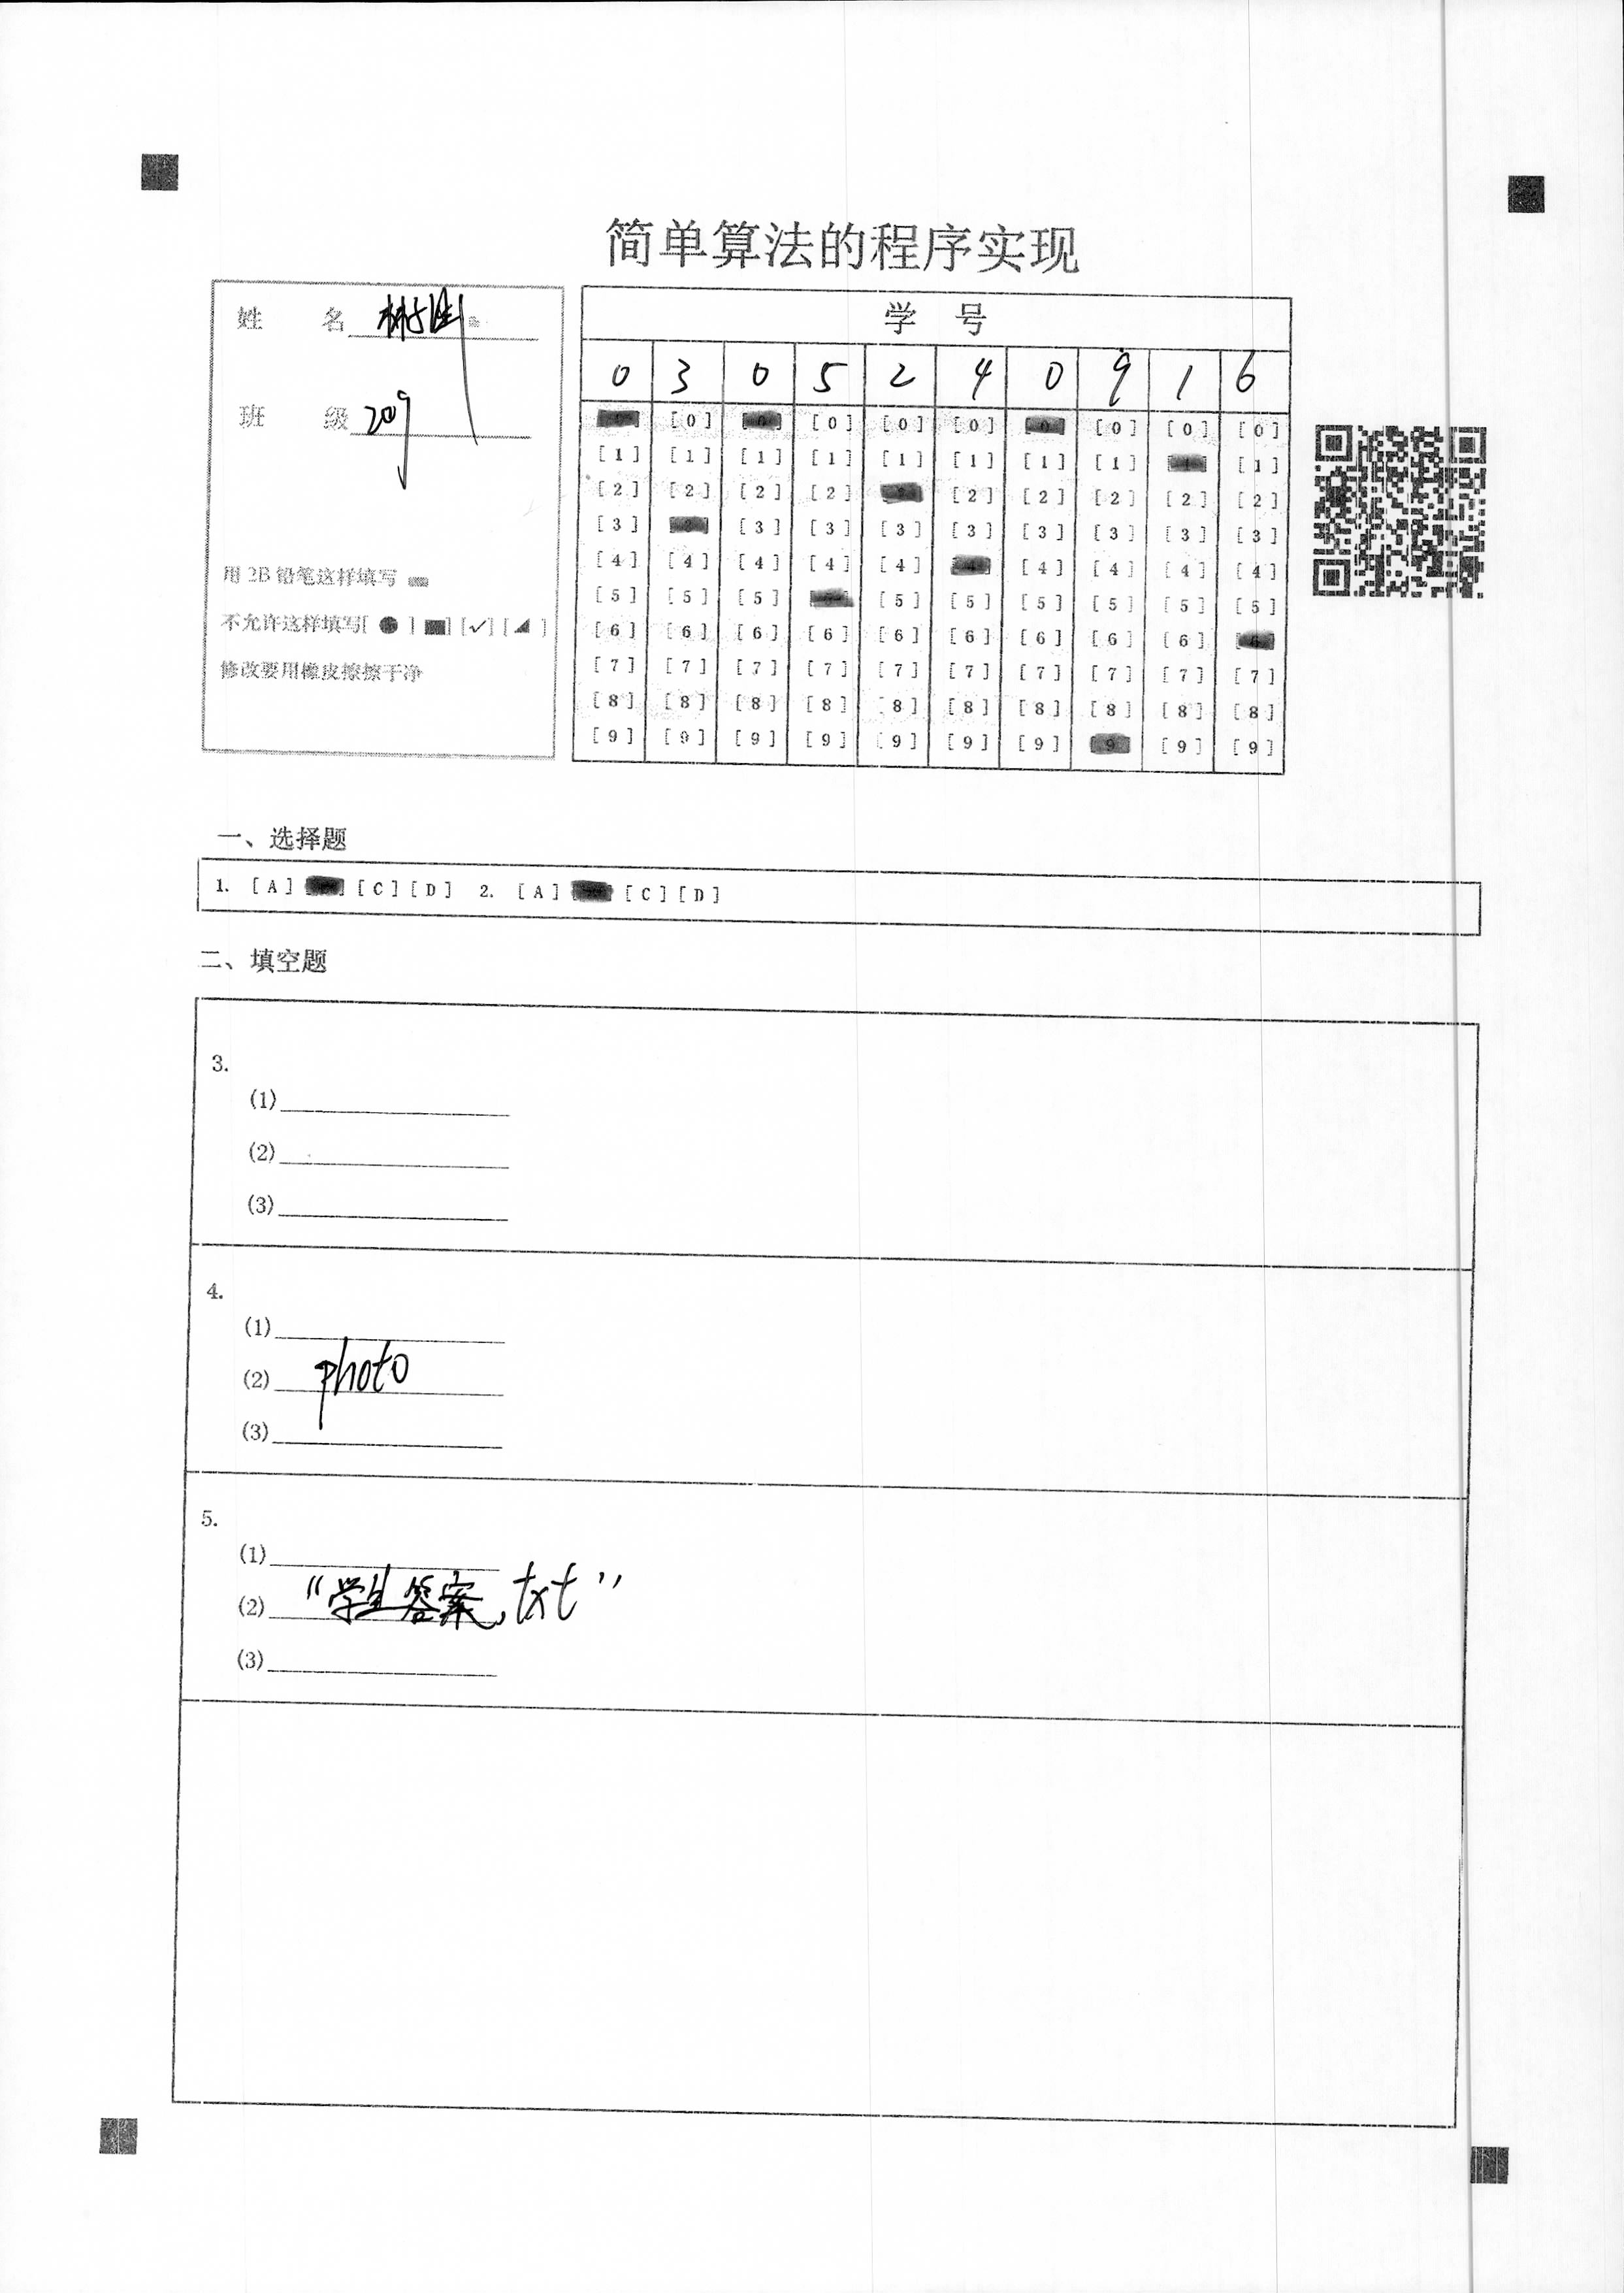 简单算法的程序实现
姓 名
班 级 209
用 2B 铅笔这样填写
不允许这样填写[ ● ] [■] [✓] [◢ ]
修改要用橡皮擦擦干净
学 号
0 3 0 5 2 4 0 9 1 6
[0] [0] [0] [0] [0] [0] [0]
[1] [1] [1] [1] [1] [1] [1] [1] [1]
[2] [2] [2] [2] [2] [2] [2] [2] [2]
[3] [3] [3] [3] [3] [3] [3] [3] [3]
[4] [4] [4] [4] [4] [4] [4] [4] [4]
[5] [5] [5] [5] [5] [5] [5] [5] [5]
[6] [6] [6] [6] [6] [6] [6] [6] [6]
[7] [7] [7] [7] [7] [7] [7] [7] [7] [7]
[8] [8] [8] [8] [8] [8] [8] [8] [8] [8]
[9] [9] [9] [9] [9] [9] [9] [9] [9]
一、选择题
1. [A] [C] [D] 2. [A] [C] [D]
二、填空题
3.
(1)
(2)
(3)
4.
(1)
(2) photo
(3)
5.
(1)
(2) "学生答案.txt"
(3)